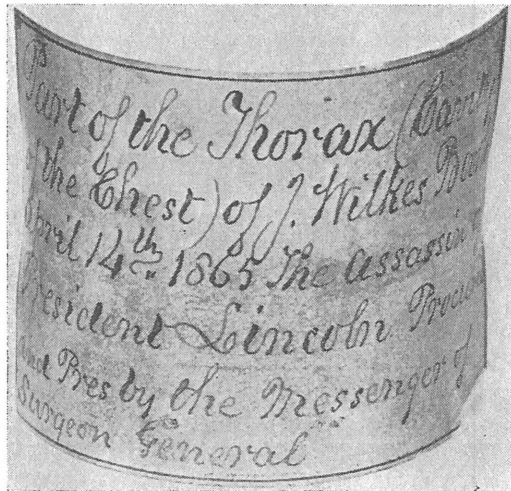 Part of the Thorax (Cavity
of the Chest) of J. Wilkes Boot
April 14th 1865 The Assassin
President Lincoln
and Pres by the Messenger of
Surgeon General